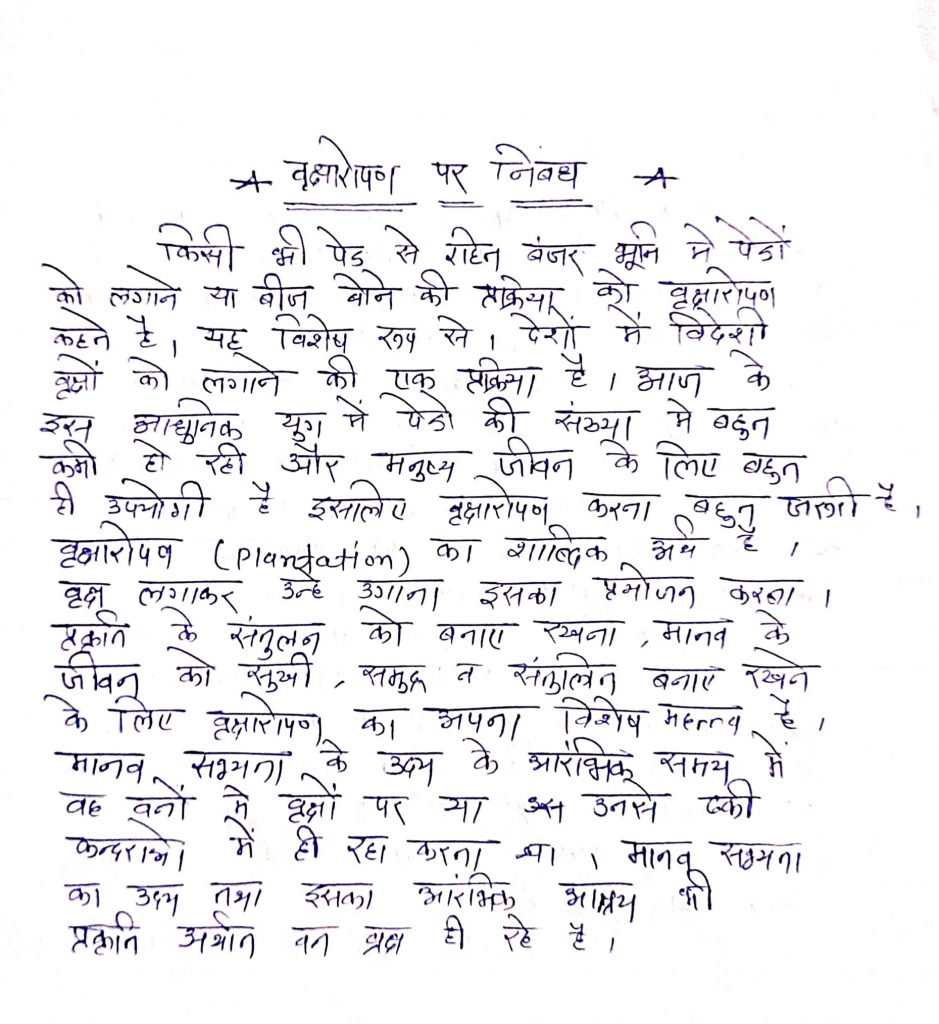 वृक्षारोपण पर निबंध
किसी भी पेड से रहित बंजर भूमि मे पेडों
को लगाने या बीज बोने की प्रक्रिया को वृक्षारोपण
कहते है, यह विशेष रूप से, देशों में विदेशी
वृक्षों को लगाने की एक प्रक्रिया है। आज के
इस आधुनिक युग में पेडो की संख्या मे बहुत
कमी हो रही और मनुष्य जीवन के लिए बहुत
ही उपयोगी है इसलिए वृक्षारोपण करना बहुत जरूरी है,
वृक्षारोपण (Plantation) का शाब्दिक अर्थ है,
वृक्ष लगाकर उन्हे उगाना इसका प्रयोजन करना।
प्रकृति के संतुलन को बनाए रखना, मानव के
जीवन को सुखी, समृद्ध व संतुलित बनाए रखने
के लिए वृक्षारोपण का अपना विशेष महत्त्व है,
मानव सभ्यता के उदय के आरंभिक समय में
वह वनों मे वृक्षों पर या उनसे ढकी
कन्दराओ में ही रहा करता था, मानव सभ्यता
का उदय तथा इसका आरंभिक आश्रय भी
प्रकृति अर्थात वन वृक्ष ही रहे है,